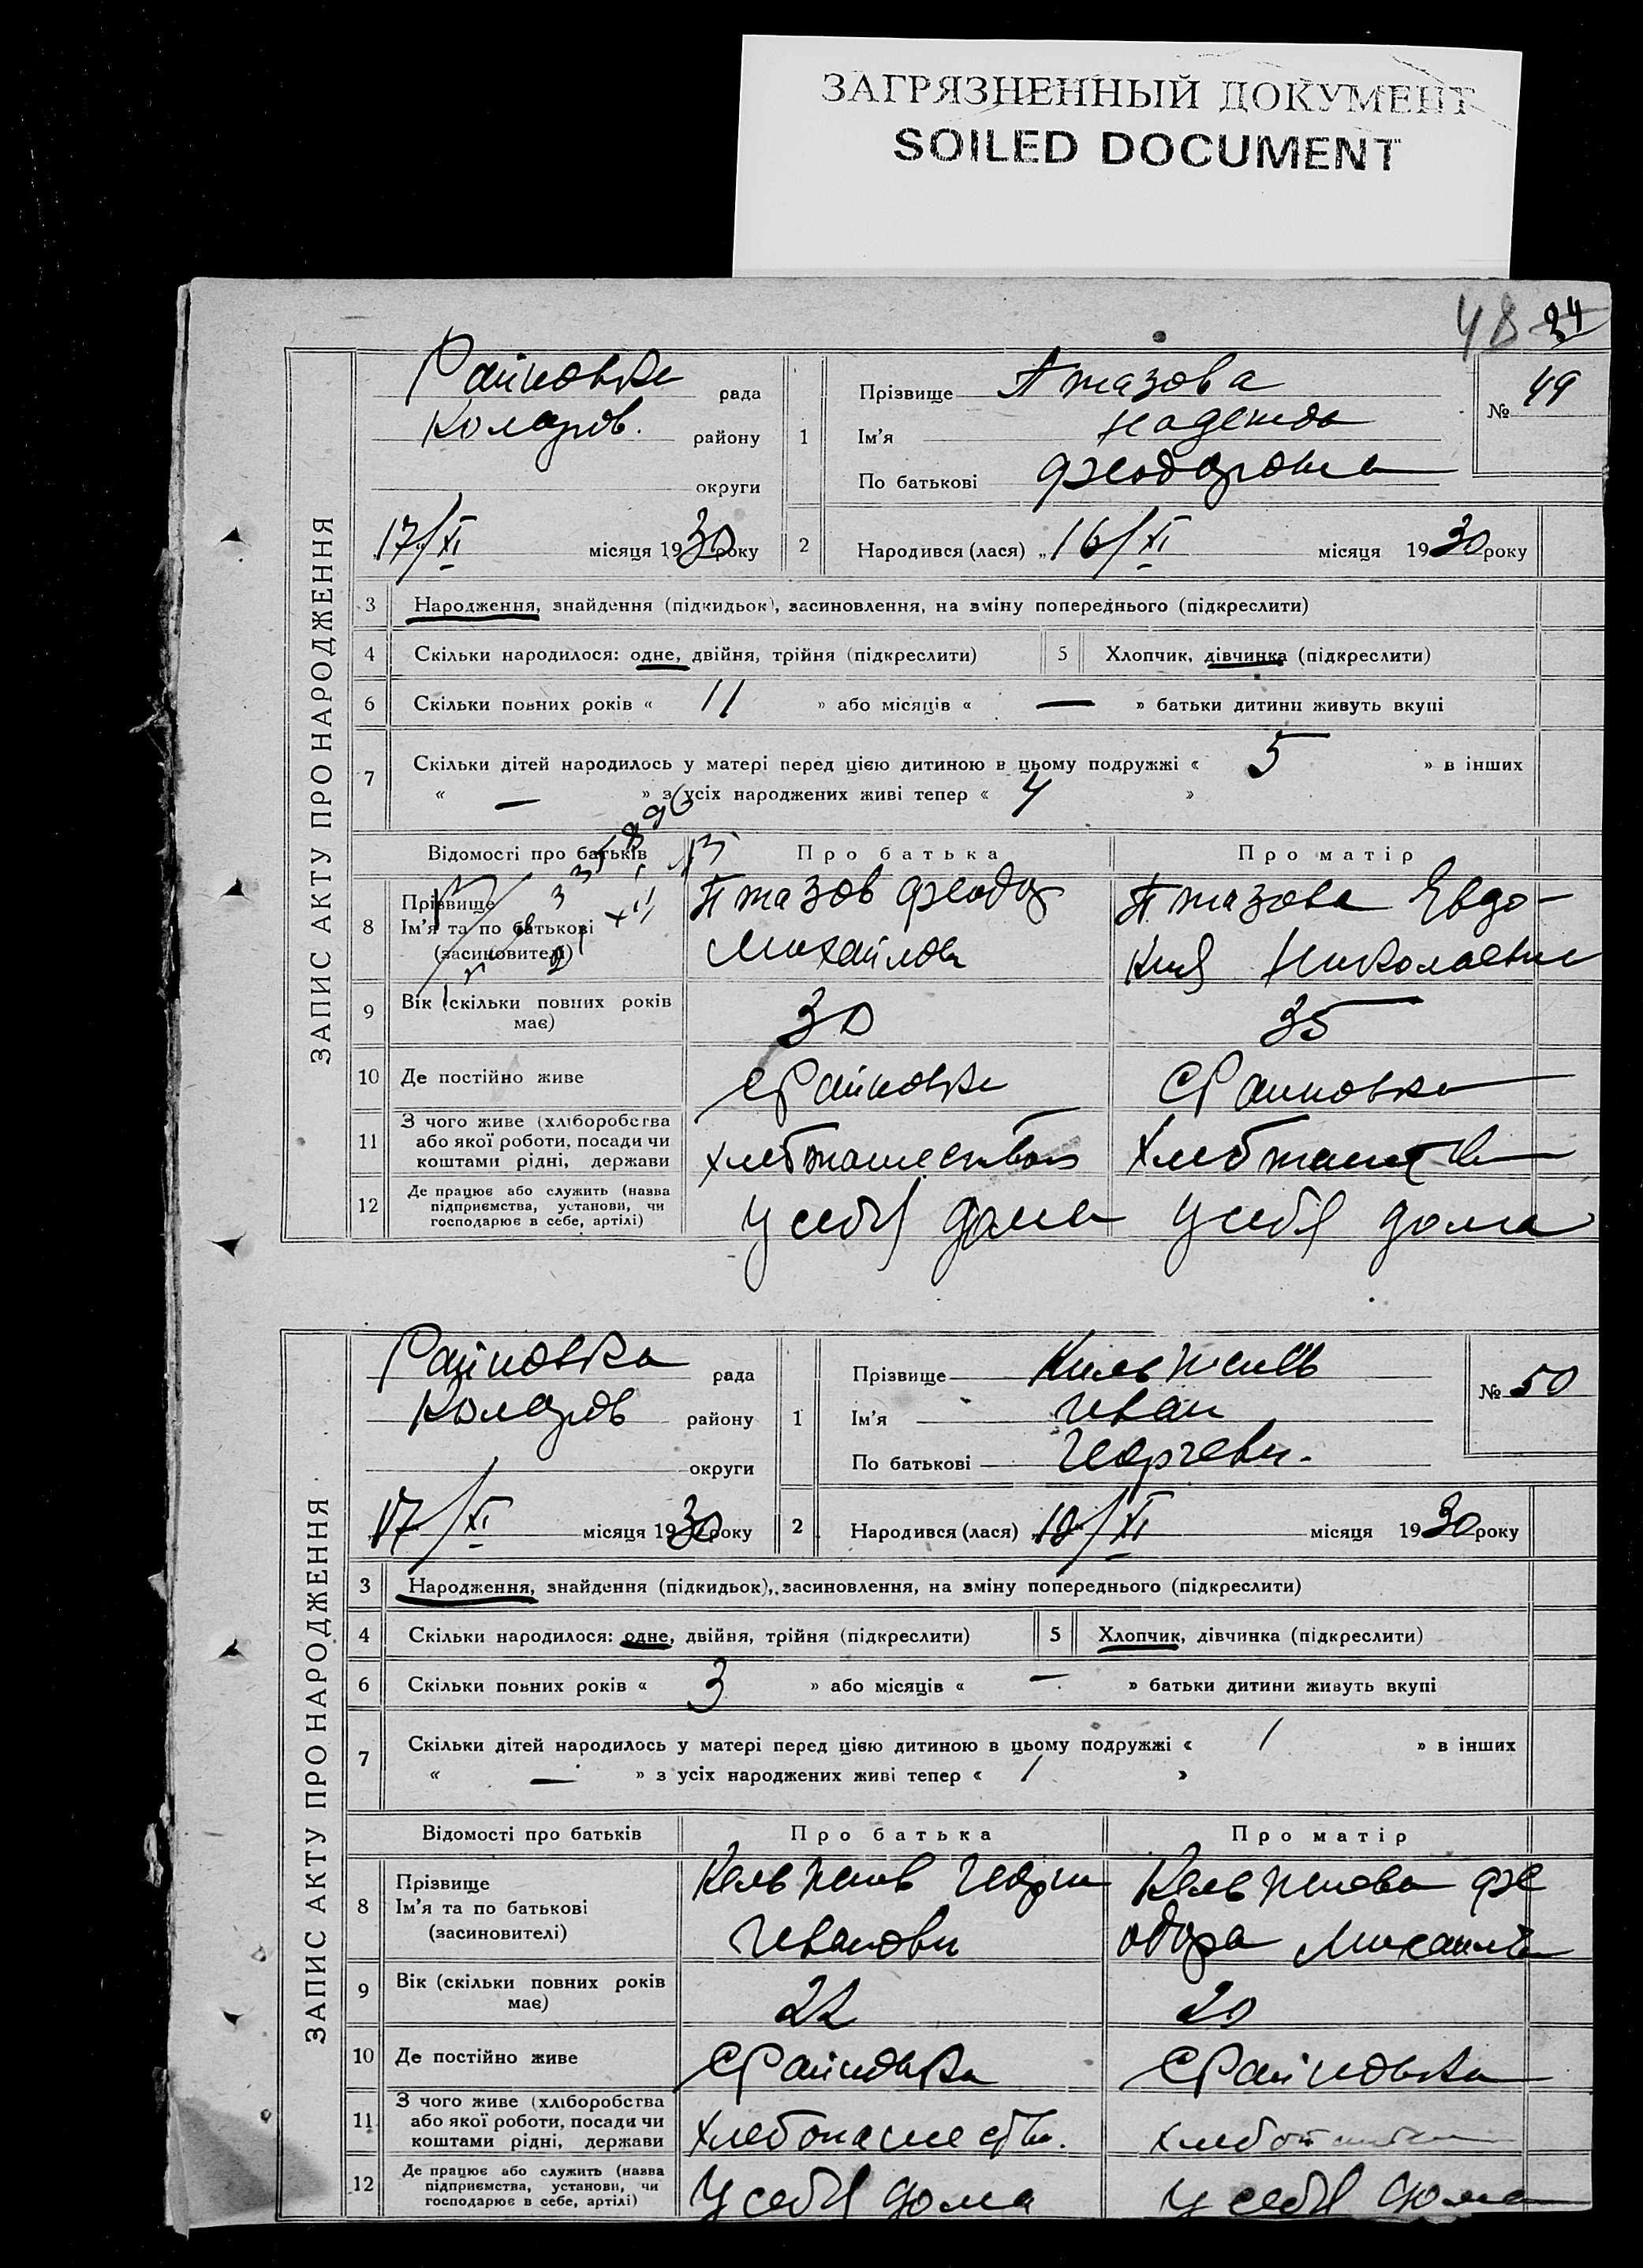 ЗАГРЯЗНЕННЫЙ ДОКУМЕНТ
SOILED DOCUMENT
48 24
ЗАПИС АКТУ ПРО НАРОДЖЕННЯ
Райновка рада
Коларов. району
округи
17/XI місяця 1930 року
1 Прізвище
Ім'я Надежда
По батькові Феодоровна
№ 49
2 Народився (лася) „16/XI місяця 1930 року
3 Народження, знайдення (підкидьок), засиновлення, на зміну попереднього (підкреслити)
4 Скільки народилося: одне, двійня, трійня (підкреслити) 5 Хлопчик, дівчинка (підкреслити)
6 Скільки повних років « 11 » або місяців « — » батьки дитини живуть вкупі
7 Скільки дітей народилось у матері перед цією дитиною в цьому подружжі « 5 » в інших
« — » з усіх народжених живі тепер « 4 »
Відомості про батьків Про батька Про матір
8 Прізвище
Ім'я та по батькові
(засиновителі)
Феодор
Михайлов
Евдо-
кия Николаевна
9 Вік (скільки повних років має) 30 35
10 Де постійно живе с Райновка с Райновка
11 З чого живе (хліборобства
або якої роботи, посади чи
коштами рідні, держави
12 Де працює або служить (назва
підприємства, установи, чи
господарює в себе, артілі)
у себя дома у себя дома
ЗАПИС АКТУ ПРО НАРОДЖЕННЯ
Райновка рада
Коларов району
округи
17/XI місяця 1930 року
1 Прізвище
Ім'я Иван
По батькові Георгеви.
№ 50
2 Народився (лася) місяця 1930 року
3 Народження, знайдення (підкидьок), засиновлення, на зміну попереднього (підкреслити)
4 Скільки народилося: одне, двійня, трійня (підкреслити) 5 Хлопчик, дівчинка (підкреслити)
6 Скільки повних років « 3 » або місяців « — » батьки дитини живуть вкупі
7 Скільки дітей народилось у матері перед цією дитиною в цьому подружжі « 1 » в інших
« — » з усіх народжених живі тепер « 1 »
Відомості про батьків Про батька Про матір
8 Прізвище
Ім'я та по батькові
(засиновителі)
Георги
Иванови
Фе
одора
9 Вік (скільки повних років має) 22 20
10 Де постійно живе с Райновка с Райновка
11 З чого живе (хліборобства
або якої роботи, посади чи
коштами рідні, держави
12 Де працює або служить (назва
підприємства, установи, чи
господарює в себе, артілі)
у себя дома у себя дома